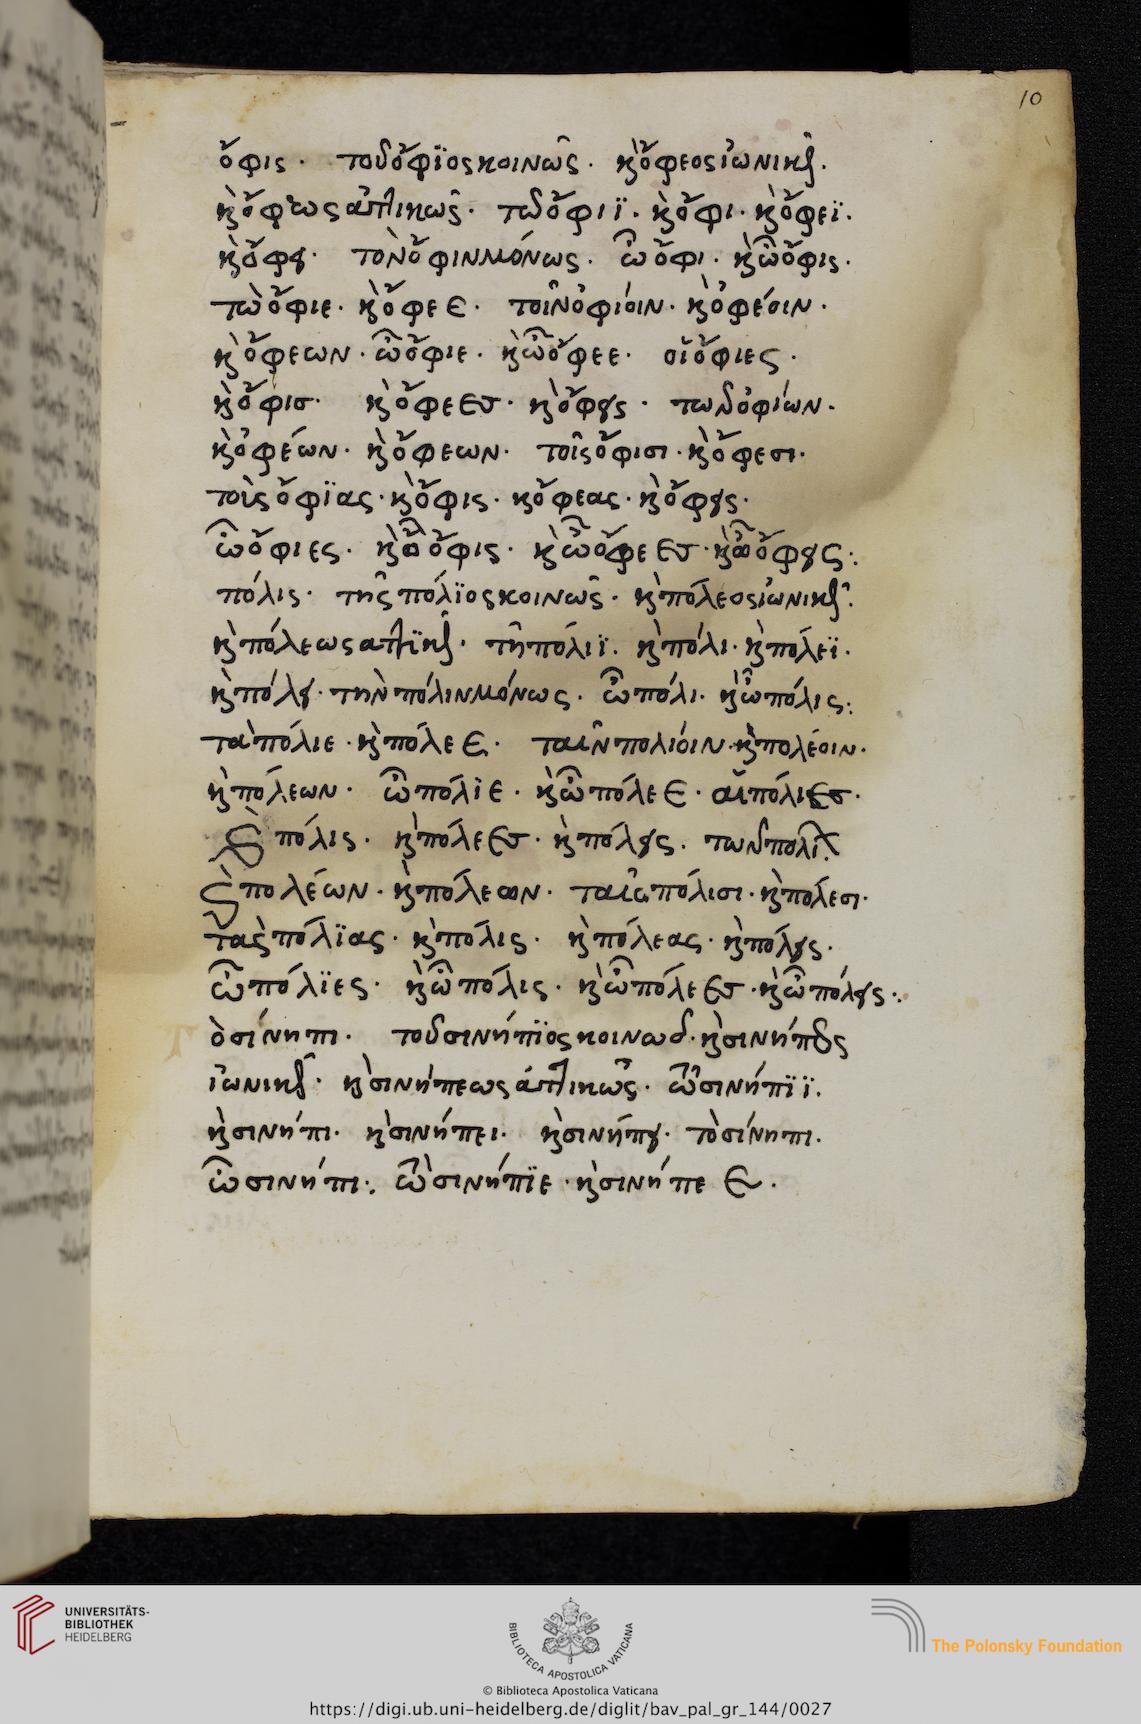 10
ὄφις · τοῦ ὄφϊος κοινῶς · κ̀ ὄφεος ἰωνικῶς ·
κ̀ ὄφεως ἀττικῶς · τῶ ὄφιϊ · κ̀ ὄφι · κ̀ ὄφεϊ ·
κ̀ ὄφȣ · τὸν ὄφιν μόνως · ὦ ὄφι · κ̀ ὦ ὄφις ·
τὼ ὄφιε · κ̀ ὄφεε · τοῖν ὀφίοιν · κ̀ ὀφέοιν ·
κ̀ ὄφεων · ὦ ὄφιε · κ̀ ὦ ὄφεε · οἱ ὄφιες ·
κ̀ ὄφισ · κ̀ ὄφεες · κ̀ ὄφȣς · τῶν ὀφίων ·
κ̀ ὀφέων · κ̀ ὄφεων · τοῖς ὄφισι · κ̀ ὄφεσι ·
τοὶς ὄφϊας · κ̀ ὄφις · κ ὄφεας · κ̀ ὄφȣς ·
ὦ ὄφιες · κ̀ ὦ ὄφις · κ̀ ὦ ὄφεες · κ̀ ὦ ὄφȣς :
πόλις · τῆς πόλϊος κοινῶς · κ̀ πόλεος ἰωνικῶς :
κ̀ πόλεως αττϊκῶς · τῆ πόλιϊ · κ̀ πόλι · κ̀ πόλεϊ ·
κ̀ πόλȣ · τὴν πόλιν μόνως · ὦ πόλι · κ̀ ὦ πόλις :
τὰ πόλιε · κ̀ πόλεε · ταῖν πολιόιν · κ̀ πολέοιν ·
κ̀ πόλεων · ὦ πόλιε · κ̀ ὦ πόλεε · αἱ πόλιες ·
κ̀ πόλις · κ̀ πόλεες · κ̀ πόλȣς · τῶν πολί
κ̀ πολέων · κ̀ πόλεων · ταῖς πόλισι · κ̀ πόλεσι ·
τὰς πόλϊας · κ̀ πόλις · κ̀ πόλεας · κ̀ πόλȣς ·
ὦ πόλϊες · κ̀ ὦ πόλις · κ̀ ὦ πόλεες · κ̀ ὦ πόλȣς :
ὸ σίνηπι · τοῦ σινήπϊος κοινῶς · κ̀ σινήπεος
ἰωνικῶς · κ̀ σινήπεως ἀττικῶς · ὦ σινήπϊϊ ·
κ̀ σινήπι · κ̀ σινήπει · κ̀ σινήπȣ · τὸ σίνηπι ·
ὦ σινήπι : ὦ σινήπϊε · κ̀ σινήπεε ·
UNIVERSITÄTS-
BIBLIOTHEK
HEIDELBERG
BIBLIOTECA APOSTOLICA VATICANA
The Polonsky Foundation
© Biblioteca Apostolica Vaticana
https://digi.ub.uni-heidelberg.de/diglit/bav_pal_gr_144/0027